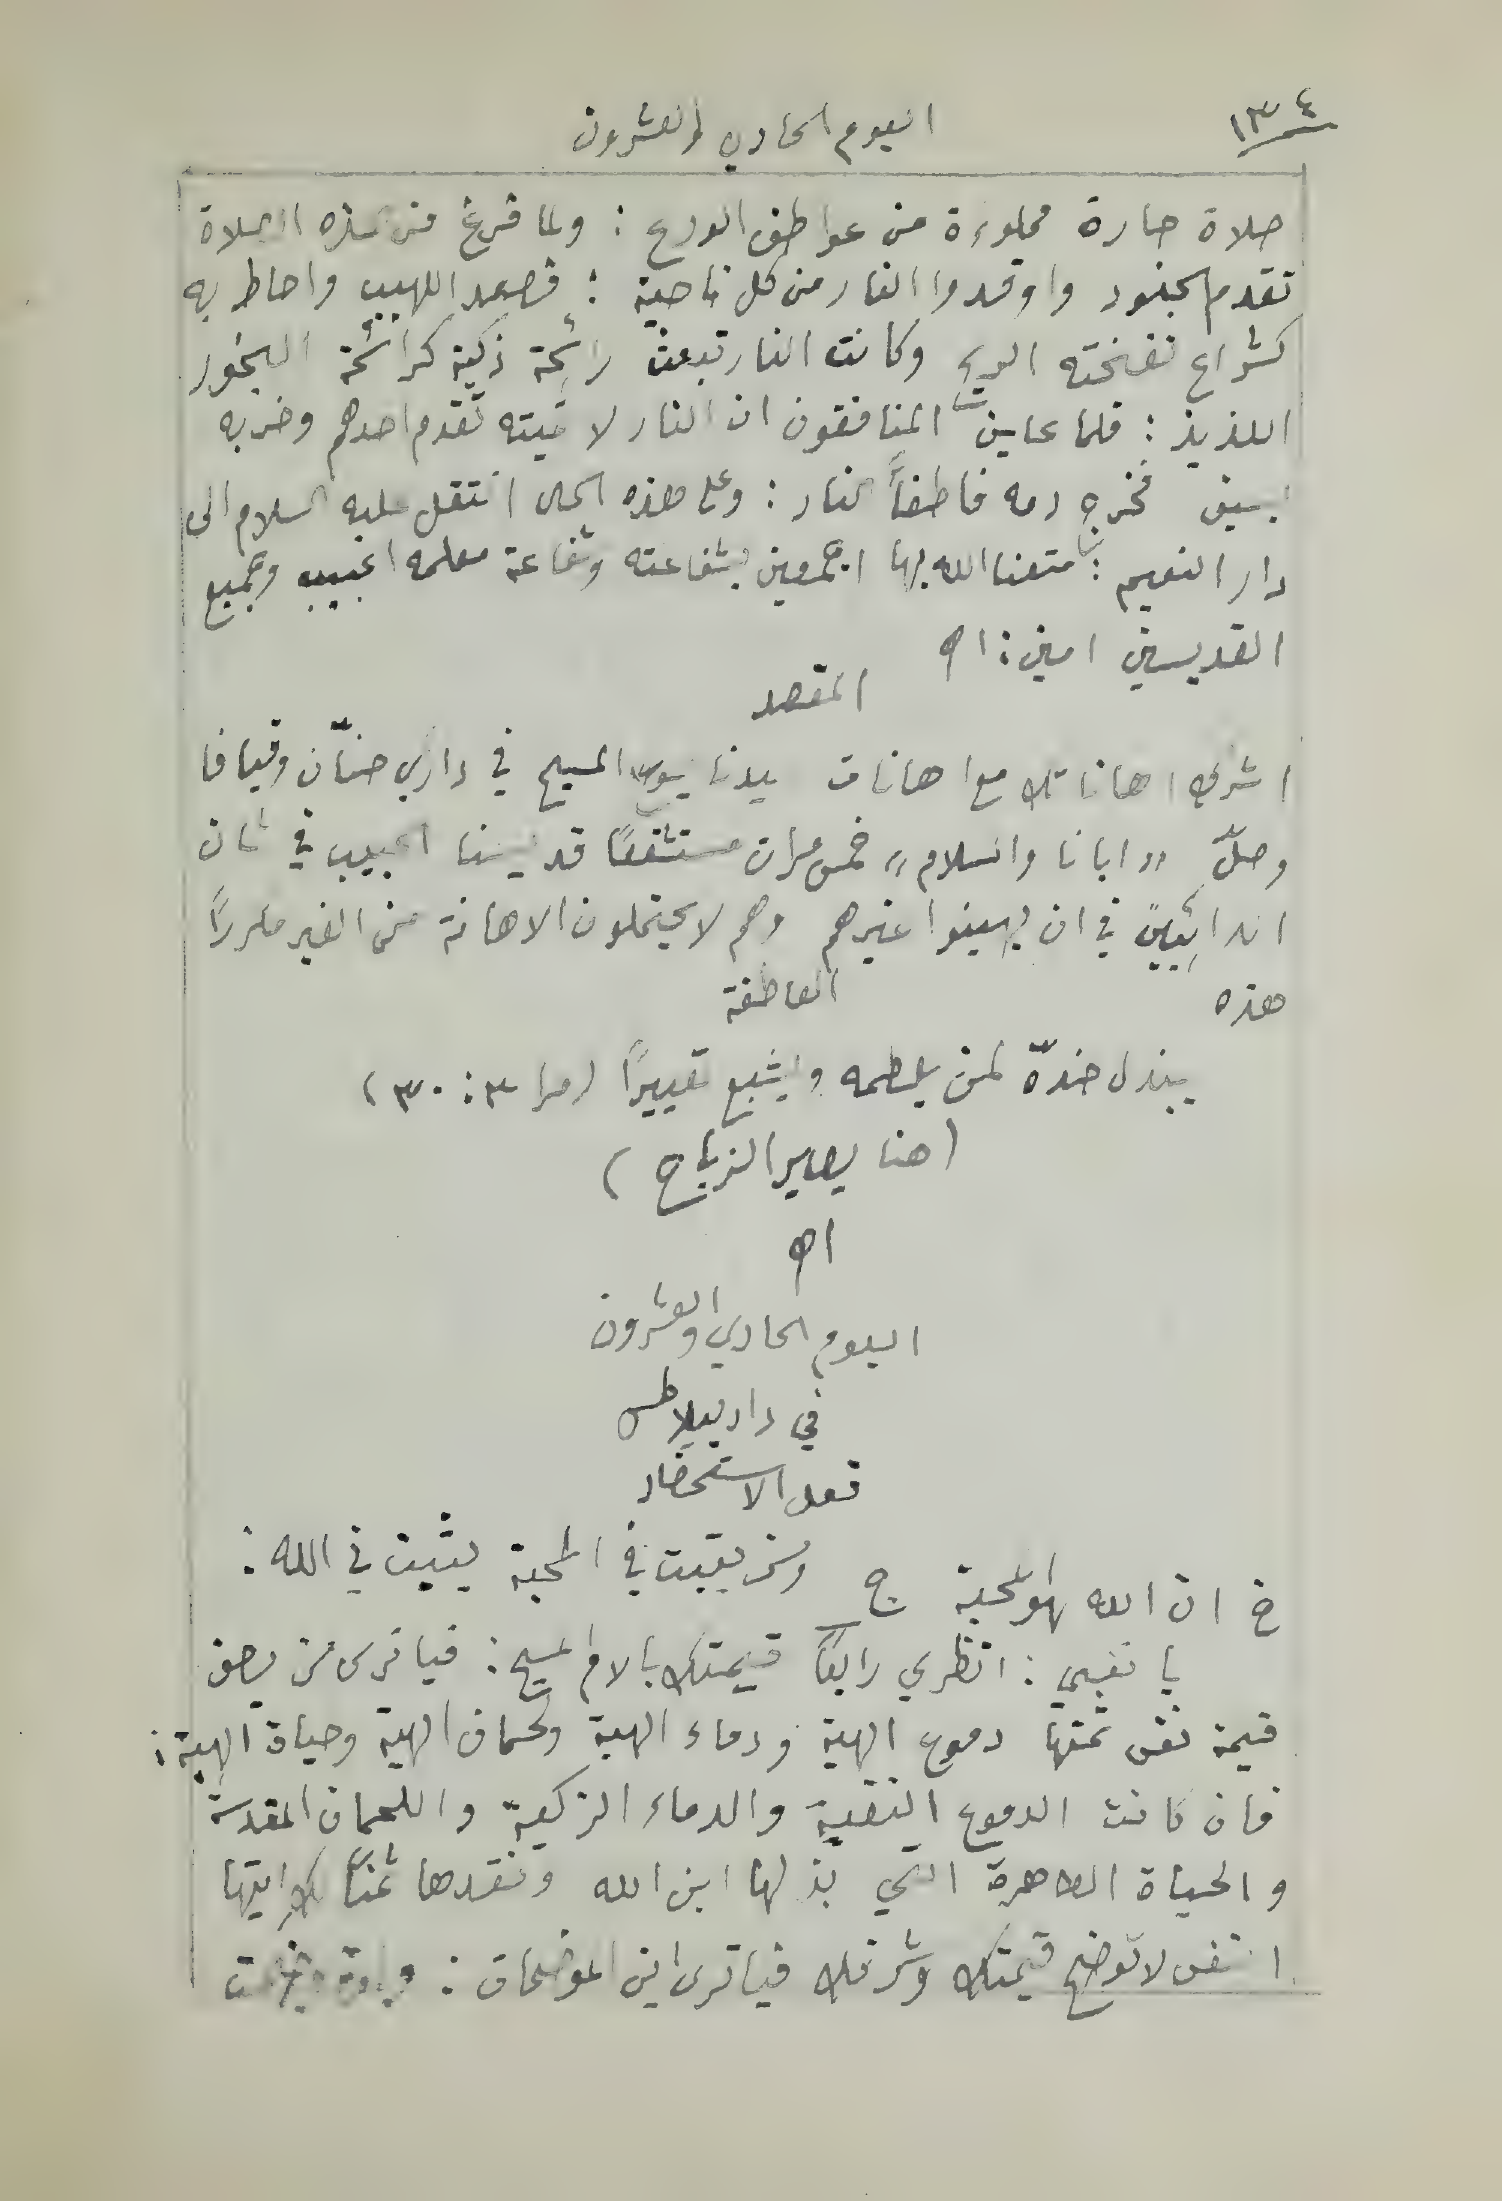 ١٣٤
اليوم الحادي والعشرون
صلاة حارة مملوءة من عواطف الورع : ولما فرغ من هذه الصلاة
تقدم الجنود واوقدوا النار من كل ناحية : فصعد اللهيب واحاط به
كشراع نفخته الريح وكانت النار تبعث رائحة ذكية كرائحة البخور
اللذيذ : فلما عاين المنافقون ان النار لا تميته تقدم احدهم وضربه
بسيف فخرج دمه فاطفأ النار : وعلى هذه الحال انتقل عليه السلام الى
دار النعيم : متعنا الله بها اجمعين بشفاعته وشفاعة معلمه الحبيب وجميع
القديسين امين : اه
المقصد
اشرك اهاناتك مع اهانات سيدنا يسوع المسيح في داري حنّان وقيافا
وصلّ "ابانا والسلام" خمس مرات مستشفعًا قديسنا الحبيب في شان
في ان يهينوا غيرهم وهم لا يحتملون الاهانة من الغير مكررًا
هذه
العاطفة
يبذل خدّه لمن يلطمه ويشبع تعييرًا (مرا ٣ : ٣٠)
(هنا يصير الزياح)
اه
اليوم الحادي والعشرون
في دار بيلاطس
فعل الاستحضار
خ ان الله لهو المحبة ج ومن يثبت في المحبة يثبت في الله :
يا نفسي : انظري رابعًا قيمتك بالام المسيح : فيا ترى من يصف
قيمة نفس ثمنها دموع الهية ودماء الهية ولحمان الهية وحياة الهية :
فان كانت الدموع النقية والدماء الزكية واللحمان المقدسة
والحياة الطاهرة التي بذلها ابن الله ونقدها ثمنًا لك ايتها
النفس لا توضح قيمتك وشرفك فيا ترى اين الموضحات :